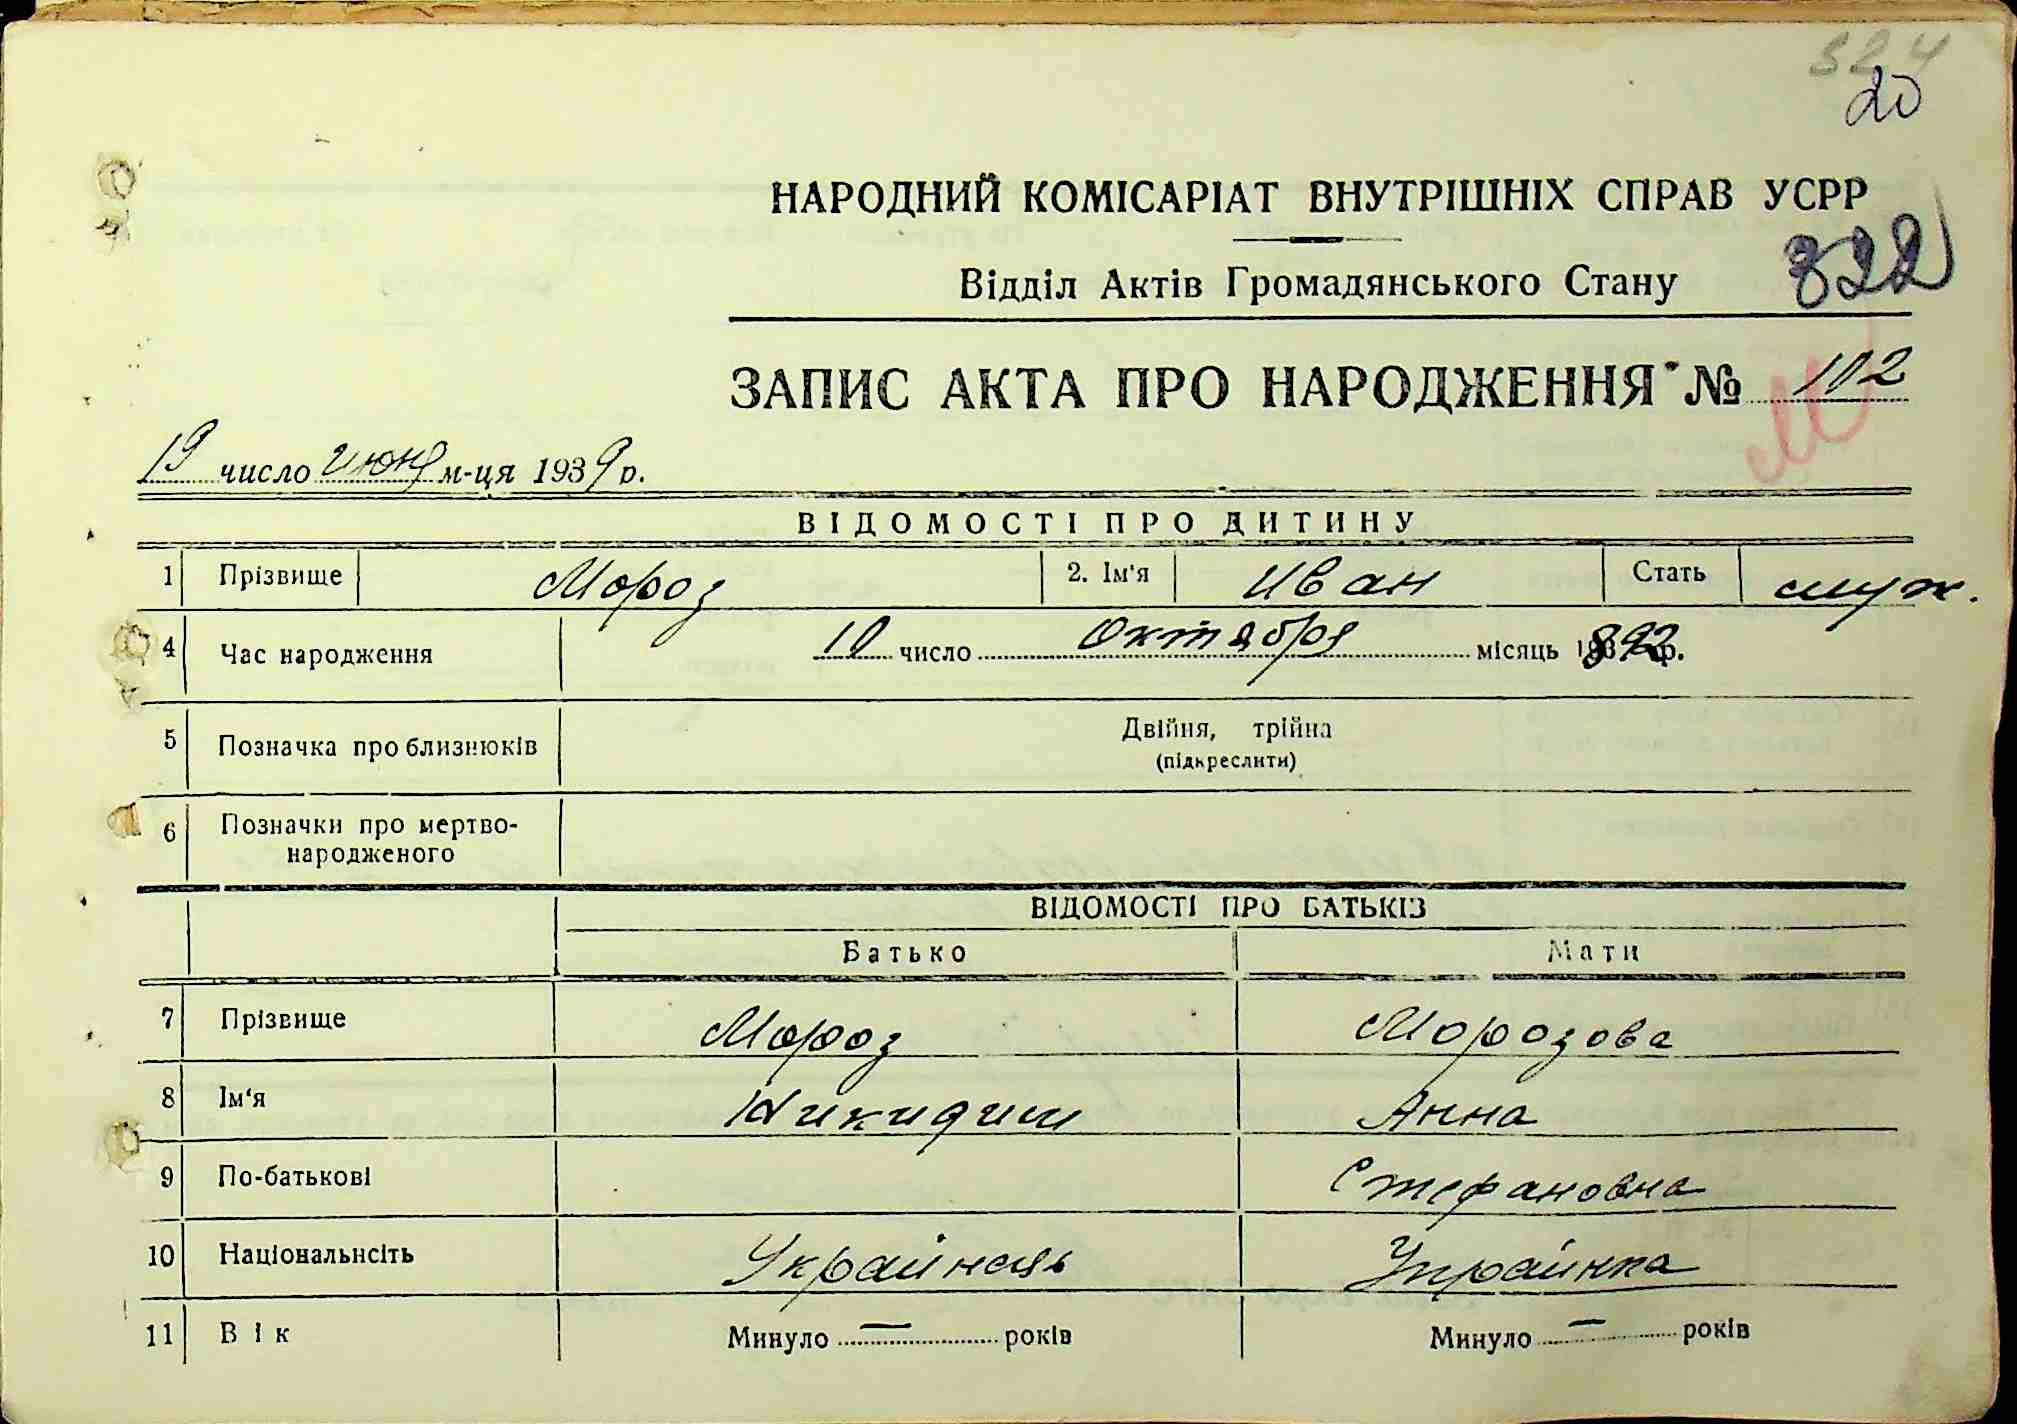 324
20
НАРОДНИЙ КОМІСАРІАТ ВНУТРІШНІХ СПРАВ УСРР
Відділ Актів Громадянського Стану
322
ЗАПИС АКТА ПРО НАРОДЖЕННЯ № 102
19 число июня м-ця 1939 р.
ВІДОМОСТІ ПРО ДИТИНУ
1 Прізвище Мороз 2. Ім'я Иван Стать муж.
4 Час народження 10 число октября місяць 1892 р.
5 Позначка про близнюків Двійня, трійна
(підкреслити)
6 Позначки про мертво-
народженого
ВІДОМОСТІ ПРО БАТЬКІВ
Батько Мати
7 Прізвище Мороз Морозова
8 Ім'я Никидим Анна
9 По-батькові Стефановна
10 Національнсіть Украйнець Украйнка
11 Вік Минуло — років Минуло — років